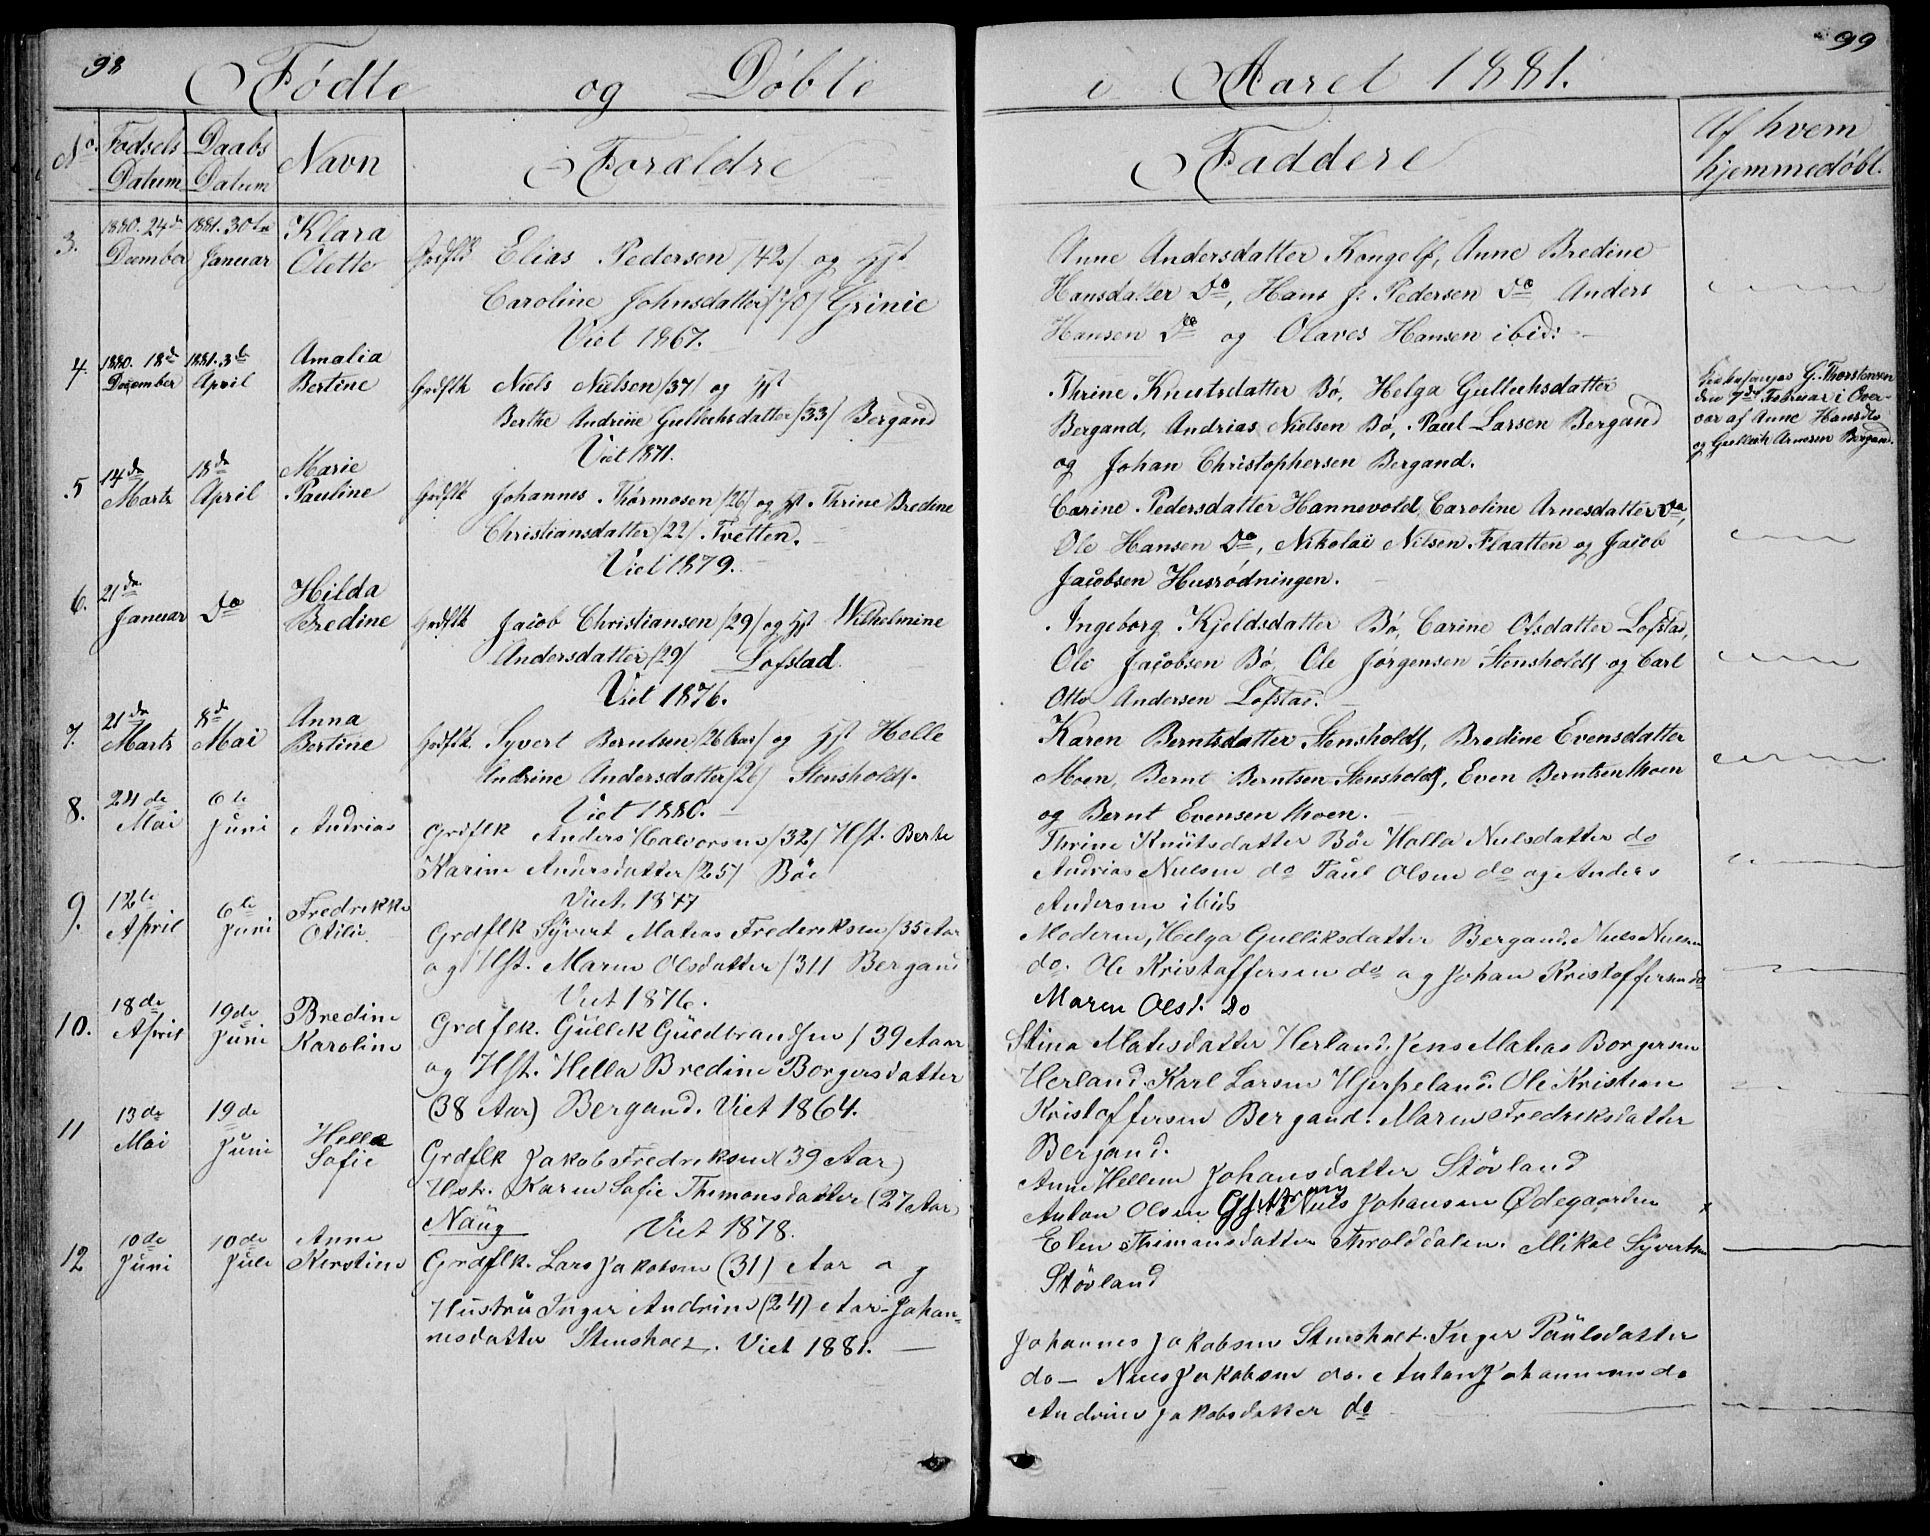 98
Fødte og Døbte
No. Fødsels Datum Daabs Datum Navn Forældre
3. 1880. 24de December 1881. 30te Januar Klara Olette Grdflk Elias Pedersen /42/ og Hst
Caroline Johnsdatter /40/ Grinie
Viet 1867.
4. 1880. 18de December 1881. 3de April Amalia Bertine Grdflk Niels Nielsen /37/ og Hst
Berthe Andrine Gulliksdatter /33/ Bergand
Viet 1871.
5 14de Marts 18de April Marie Pauline Grdflk Johannes Thormosen /26/ og Hst. Thrine Bredine
Christiansdatter /22/ Tvetten.
Viet 1879.
6. 21de Januar Do Hilda Bredine Grdflk Jacob Christiansen /29/ og Hst Wilhelmine
Andersdatter /29/ Lofstad.
Viet 1876.
7. 21de Marts 8de Mai Anna Bertine Grdflk Syvert Berntsen /26 Aar/ og Hst Helle
Andrine Andersdatter /26/ Stensholdt.
Viet 1880.
8. 24de Mai 6te Juni Andrias Grdflk Anders Halvorsen /32/ Hst. Berte
Karine Andersdatter /25/ Böe
Viet. 1877
9. 12te April 6te Juni Fredrikke Otilie Grdflk Syvert Matias Frederiksen /35 Aar
og Hst. Maren Olsdatter /31/ Bergand
Viet 1876.
10. 18de April 19de Juni Bredine Karoline Grdflk. Gullik Guldbrandsen / 39 Aar
og Hst. Hella Bredine Borgersdatter
(38 Aar) Bergand. Viet 1864.
11 13de Mai 19de Juni Hella Sofie Grdflk Jakob Fredriksen (39 Aar)
Hstr. Karen Sofie Thimonsdatter (27 Aar)
Naug Viet 1878.
12 10de Juni 10de Juli Anne Kirstine Grdflk. Lars Jakobsen (31) Aar og
Hustru Inger Andrine (24) Aar Johan-
nesdatter Stensholt. Viet 1881.
99
i Aaret 1881.
Faddere Af hvem hjemmedøbt.
Anne Andersdatter Kongelf, Anne Bredine
Hansdatter Do, Hans J. Pedersen Do Anders
Hansen Do og Olaves Hansen ibid:
Thrine Knutsdatter Bø, Helga Gulliksdatter
Bergand, Andrias Nielsen Bø, Paul Larsen Bergand
og Johan Christophersen Bergand.
G. Thorstensen
den 7de Februar i Over-
vær af Anne Hansdtr
og Gullik Arnesen Bergand.
Carine Pedersdatter Hannevold, Caroline Arnesdatter Do,
Ole Hansen Do, Nikolai Nilsen Flaatten og Jacob
Jacobsen Husrødningen.
Ingeborg Kjeldsdatter Bø, Carine Olsdatter Lofstad,
Ole Jacobsen Bø, Ole Jørgensen Stensholdt og Carl
Otto Andersen Lofstad.
Karen Berntsdatter Stensholdt, Bredine Evensdatter
Moen, Bernt Berntsen Stensholdt, Even Berntsen Moen
og Bernt Evensen Moen.
Thrine Knutsdatter Böe Halla Nielsdatter do
Andrias Nielsen do Paul Olsen do og Anders
Andersen ibid
Moderen, Helga Gulliksdatter Bergand. Niels Nielsen
do. Ole Kristoffersen do og Johan Kristoffersen do
Maren Olsd. do
Stina Matisdatter Herland. Jens Matias Borgersen
Herland. Karl Larsen Hjerpeland. Ole Kristian
Kristoffersen Bergand. Maren Fredriksdatter
Bergand.
Anne Hellene Johansdatter Stövland
Anton Olsen Niels Johansen Ødegaarden
Elen Thimansdatter Trolddalen. Mikal Syvertsen
Stövland
Johannes Jakobsen Stensholt. Inger Paulsdatter
do – Niels Jakobsen do. Anton Johannesen do
Andrine Jakobsdatter do